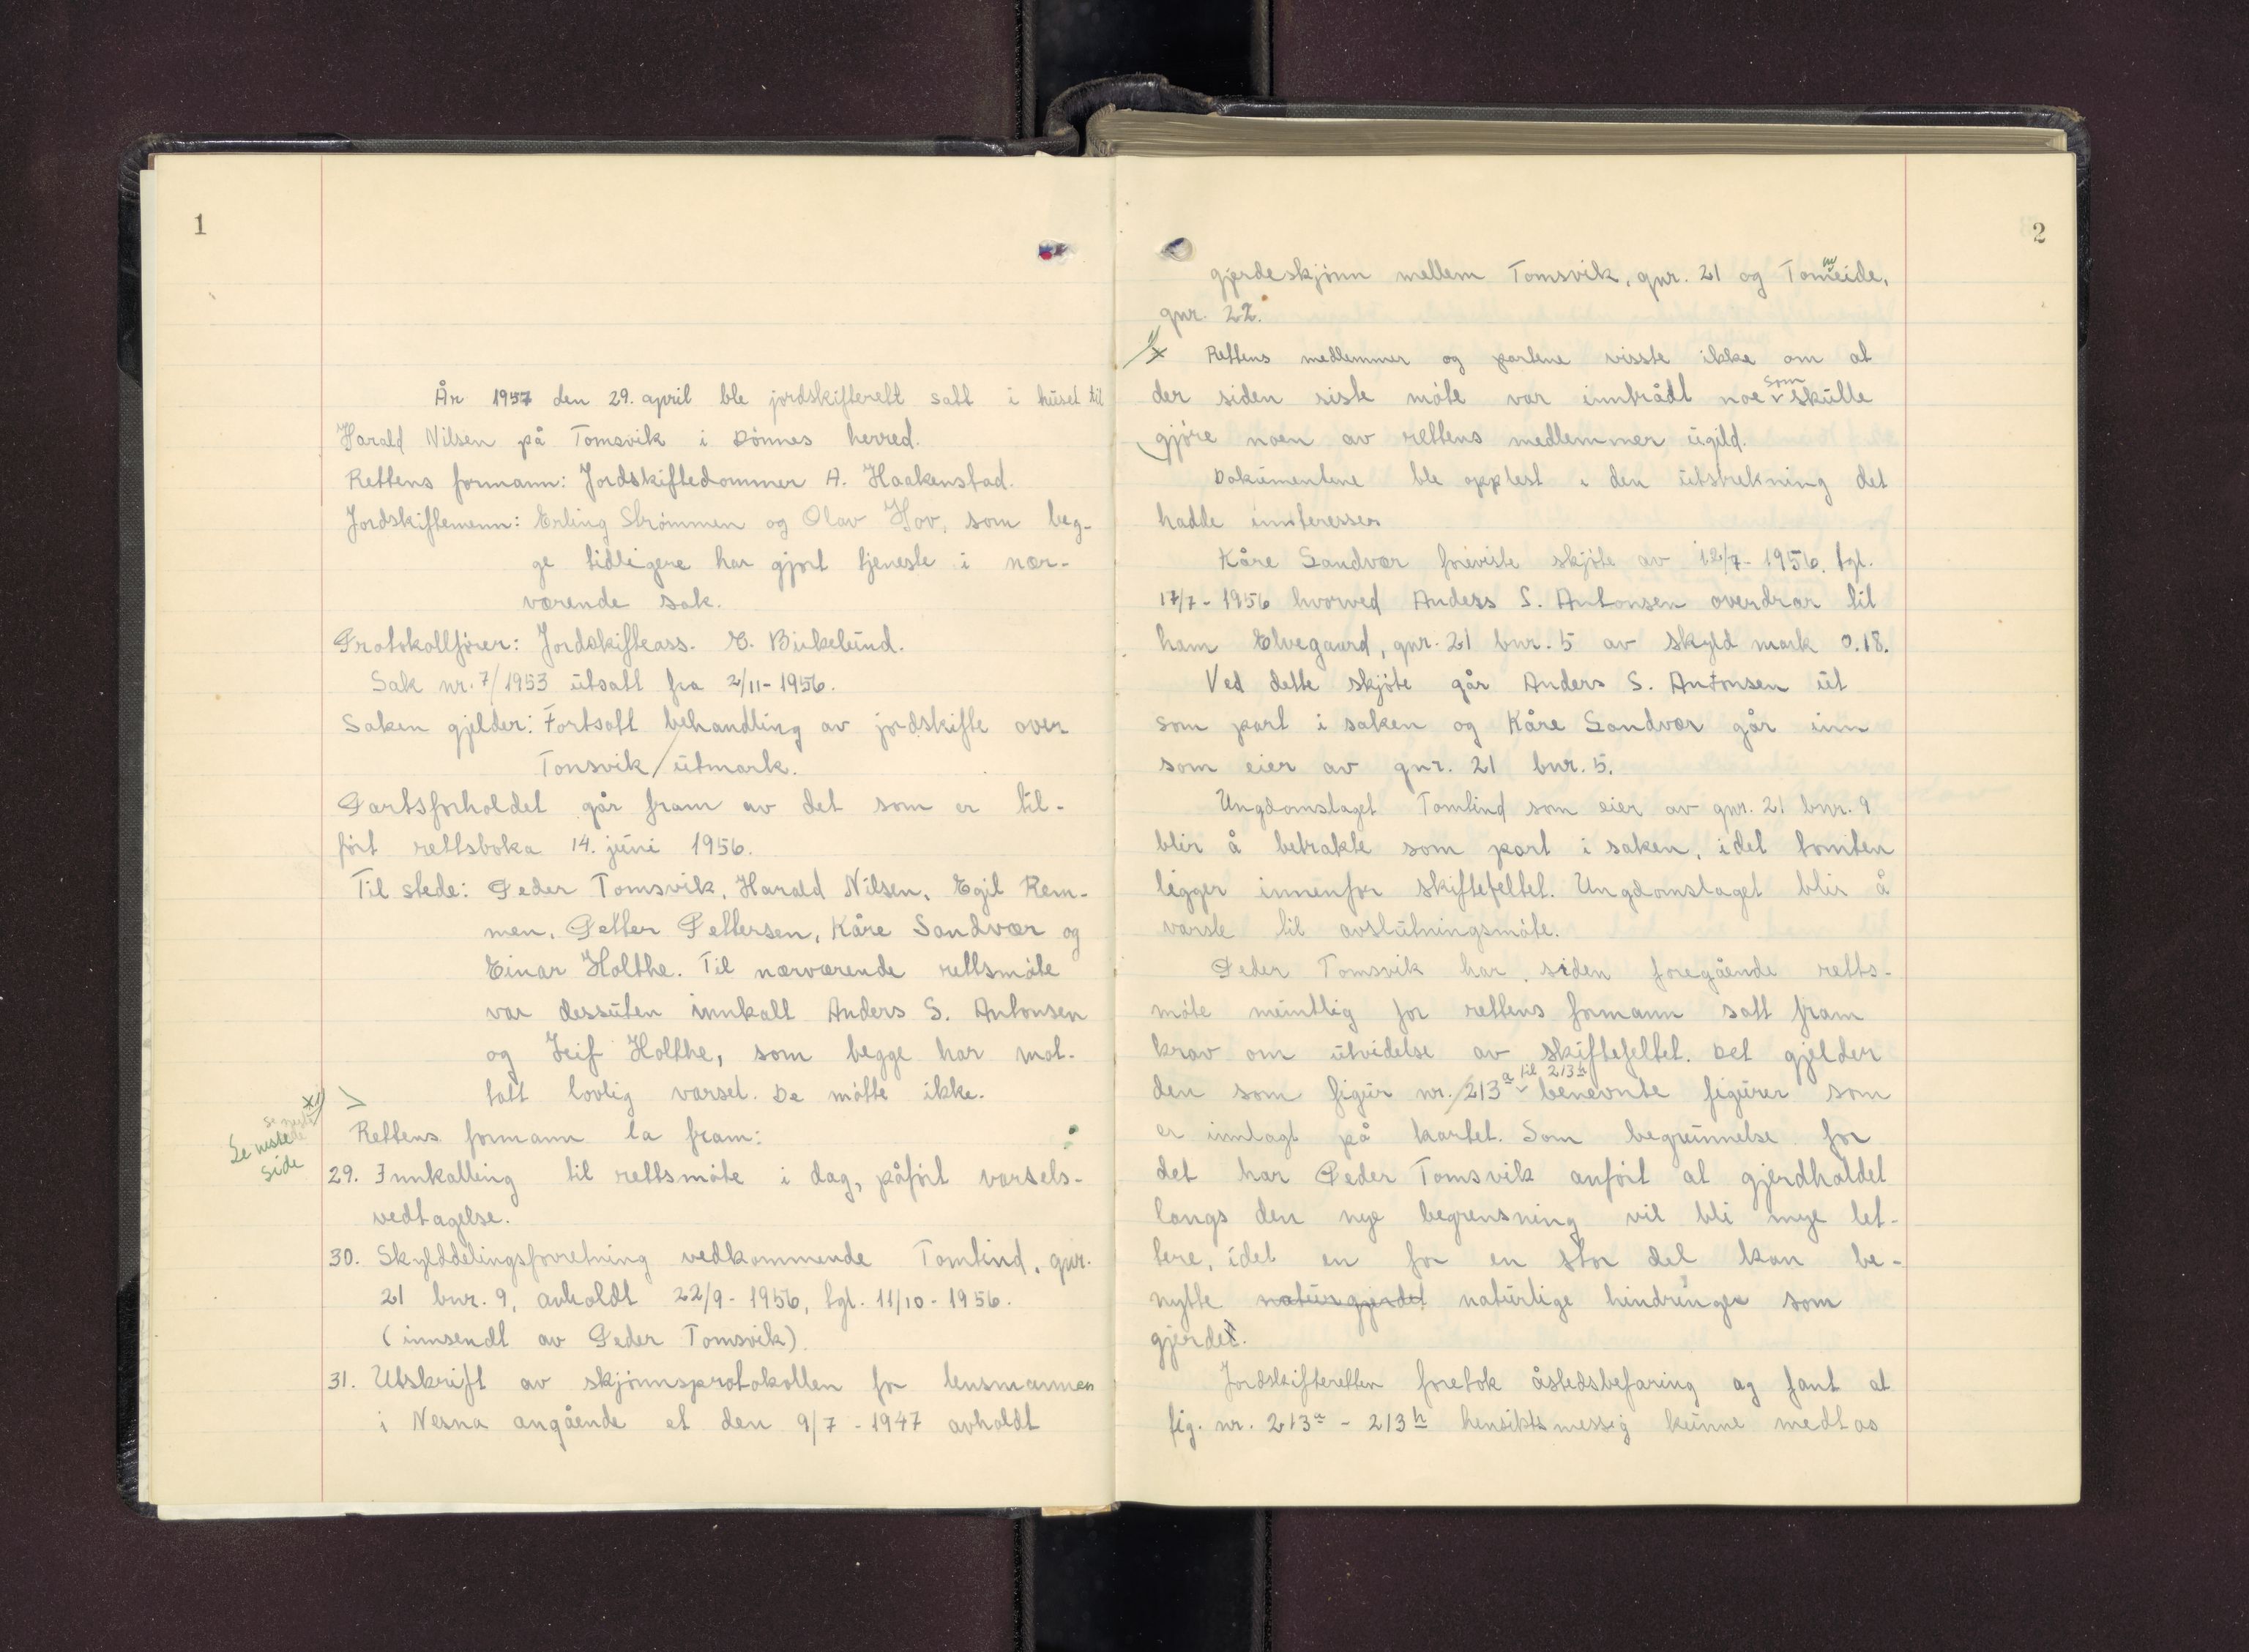 1
År 1957 den 29. april ble jordskifterett satt i huset til
Harald Nilsen på Tomsvik i Dønnes herred.
Rettens formann: Jordskiftedommer A. Haakenstad.
Jordskiftemenn: Erling Strømmen og Olav Hov, som beg-
ge tidligere har gjort tjeneste i nær-
værende sak.
Protokollfører: Jordskifteass. E. Birkelund.
Sak nr. 7/1953 utsatt fra 2/11-1956.
Saken gjelder: Fortsatt behandling av jordskifte over
Tonsvik utmark.
Partsforholdet går fram av det som er til-
ført rettsboka 14. juni 1956.
Til stede: Peder Tomsvik, Harald Nilsen, Egil Rem-
men, Petter Pettersen, Kåre Sandvær og
Einar Holthe. Til nærværende rettsmøte
var dessuten innkalt Anders S. Antonsen
og Leif Holthe, som begge har mot-
tatt lovlig varsel. De møtte ikke.
x)
Se neste side
Rettens formann la fram:
29. Innkalling til rettsmøte i dag, påført varsels-
vedtagelse.
30. Skylddelingsforretning vedkommende Tomtind, gnr.
21 bnr. 9, avholdt 22/9-1956, tgl. 11/10-1956.
(innsendt av Peder Tomsvik).
31. Utskrift av skjønnsprotokollen for lensmannen
i Nesna angående et den 9/7-1947 avholdt
2
gjerdeskjønn mellem Tomsvik, gnr. 21 og Tomeide,
gnr. 22.
x Rettens medlemmer og partene visste ikke om at
der siden siste møte var inntrådt noe som skulle
gjøre noen av rettens medlemmer ugild.
Dokumentene ble opplest i den utstrekning det
hadde innteresser
Kåre Sandvær foreviste skjøte av 12/7-1956, tgl.
17/7-1956 hvorved Anders S. Antonsen overdrar til
ham Elvegaard, gnr. 21 bnr. 5 av skyld mark 0.18.
Ved dette skjøte går Anders S. Antonsen ut
som part i saken og Kåre Sandvær går inn
som eier av gnr. 21 bnr. 5.
Ungdomslaget Tomtind som eier av gnr. 21 bnr. 9
blir å betrakte som part i saken, idet tomten
ligger innenfor skiftefeltet. Ungdomslaget blir å
varsle til avslutningsmøte.
Peder Tomsvik har siden foregående retts-
møte muntlig for rettens formann satt fram
krav om utvidelse av skiftefeltet. Det gjelder
den som figur nr. 213a til 213h benevnte figurer som
er inntagt på kartet. Som begrunnelse for
det har Peder Tomsvik anført at gjerdholdet
langs den nye begrensning vil bli mye let-
tere, idet en for en stor del kan be-
nytte naturgjerdet naturlige hindringer som
gjerde.
Jordskifteretten foretok åstedsbefaring og fant at
fig. nr. 213a - 213h hensiktsmessig kunne medtas